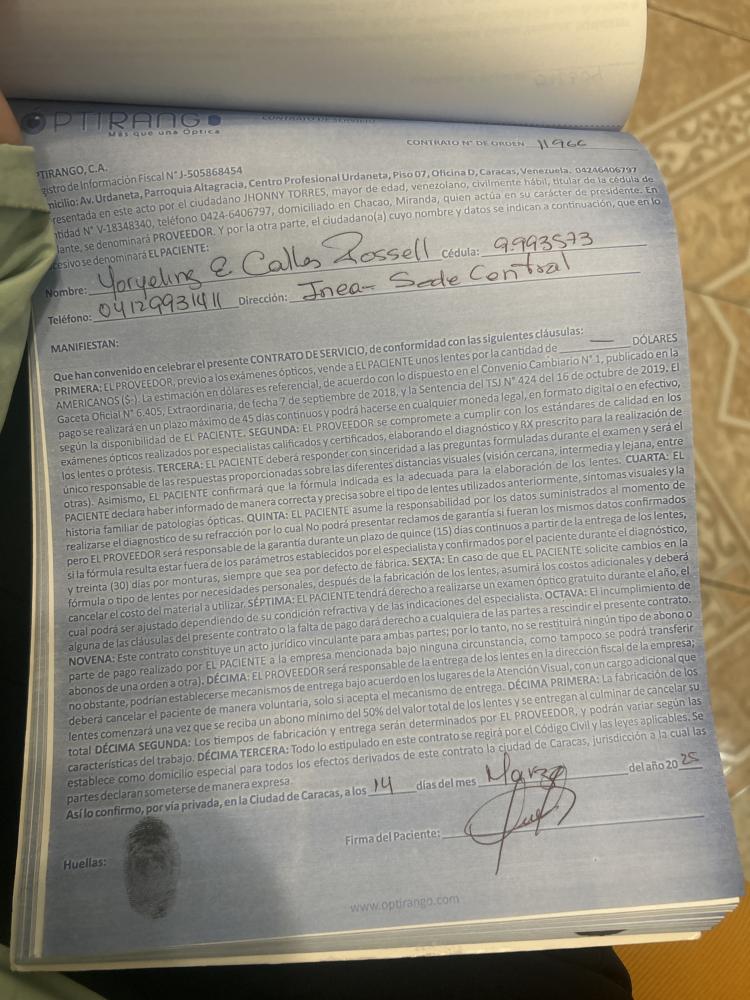 OPTIRANGO
Más que una Óptica
CONTRATO DE SERVICIO
CONTRATO N° DE ORDEN 11966
OPTIRANGO, C.A.
Registro de Información Fiscal N° J-505868454
Domicilio: Av. Urdaneta, Parroquia Altagracia, Centro Profesional Urdaneta, Piso 07, Oficina D, Caracas, Venezuela. 04246406797
representada en este acto por el ciudadano JHONNY TORRES, mayor de edad, venezolano, civilmente hábil, titular de la cédula de
identidad N° V-18348340, teléfono 0424-6406797, domiciliado en Chacao, Miranda, quien actúa en su carácter de presidente. En
adelante, se denominará PROVEEDOR. Y por la otra parte, el ciudadano(a) cuyo nombre y datos se indican a continuación, que en lo
sucesivo se denominará EL PACIENTE:
Nombre: Yoryeling E Calles Rossell Cédula: 9.993573
Teléfono: 04129931411 Dirección: Inea- Sede Central
MANIFIESTAN:
Que han convenido en celebrar el presente CONTRATO DE SERVICIO, de conformidad con las siguientes cláusulas:
PRIMERA: EL PROVEEDOR, previo a los exámenes ópticos, vende a EL PACIENTE unos lentes por la cantidad de — DÓLARES
AMERICANOS ($-). La estimación en dólares es referencial, de acuerdo con lo dispuesto en el Convenio Cambiario N° 1, publicado en la
Gaceta Oficial N° 6.405, Extraordinaria, de fecha 7 de septiembre de 2018, y la Sentencia del TSJ N° 424 del 16 de octubre de 2019. El
pago se realizará en un plazo máximo de 45 días continuos y podrá hacerse en cualquier moneda legal, en formato digital o en efectivo,
según la disponibilidad de EL PACIENTE. SEGUNDA: EL PROVEEDOR se compromete a cumplir con los estándares de calidad en los
exámenes ópticos realizados por especialistas calificados y certificados, elaborando el diagnóstico y RX prescrito para la realización de
los lentes o prótesis. TERCERA: EL PACIENTE deberá responder con sinceridad a las preguntas formuladas durante el examen y será el
único responsable de las respuestas proporcionadas sobre las diferentes distancias visuales (visión cercana, intermedia y lejana, entre
otras). Asimismo, EL PACIENTE confirmará que la fórmula indicada es la adecuada para la elaboración de los lentes. CUARTA: EL
PACIENTE declara haber informado de manera correcta y precisa sobre el tipo de lentes utilizados anteriormente, síntomas visuales y la
historia familiar de patologías ópticas. QUINTA: EL PACIENTE asume la responsabilidad por los datos suministrados al momento de
realizarse el diagnostico de su refracción por lo cual No podrá presentar reclamos de garantía si fueran los mismos datos confirmados
pero EL PROVEEDOR será responsable de la garantía durante un plazo de quince (15) días continuos a partir de la entrega de los lentes,
si la fórmula resulta estar fuera de los parámetros establecidos por el especialista y confirmados por el paciente durante el diagnóstico,
y treinta (30) días por monturas, siempre que sea por defecto de fábrica. SEXTA: En caso de que EL PACIENTE solicite cambios en la
fórmula o tipo de lentes por necesidades personales, después de la fabricación de los lentes, asumirá los costos adicionales y deberá
cancelar el costo del material a utilizar. SÉPTIMA: EL PACIENTE tendrá derecho a realizarse un examen óptico gratuito durante el año, el
cual podrá ser ajustado dependiendo de su condición refractiva y de las indicaciones del especialista. OCTAVA: El incumplimiento de
alguna de las cláusulas del presente contrato o la falta de pago dará derecho a cualquiera de las partes a rescindir el presente contrato.
NOVENA: Este contrato constituye un acto jurídico vinculante para ambas partes; por lo tanto, no se restituirá ningún tipo de abono o
parte de pago realizado por EL PACIENTE a la empresa mencionada bajo ninguna circunstancia, como tampoco se podrá transferir
abonos de una orden a otra). DÉCIMA: EL PROVEEDOR será responsable de la entrega de los lentes en la dirección fiscal de la empresa;
no obstante, podrían establecerse mecanismos de entrega bajo acuerdo en los lugares de la Atención Visual, con un cargo adicional que
deberá cancelar el paciente de manera voluntaria, solo si acepta el mecanismo de entrega. DÉCIMA PRIMERA: La fabricación de los
lentes comenzará una vez que se reciba un abono mínimo del 50% del valor total de los lentes y se entregan al culminar de cancelar su
total DÉCIMA SEGUNDA: Los tiempos de fabricación y entrega serán determinados por EL PROVEEDOR, y podrán variar según las
características del trabajo. DÉCIMA TERCERA: Todo lo estipulado en este contrato se regirá por el Código Civil y las leyes aplicables. Se
establece como domicilio especial para todos los efectos derivados de este contrato la ciudad de Caracas, jurisdicción a la cual las
partes declaran someterse de manera expresa.
Así lo confirmo, por vía privada, en la Ciudad de Caracas, a los 14 días del mes Marzo del año 20 25
Firma del Paciente:
Huellas:
www.optirango.com